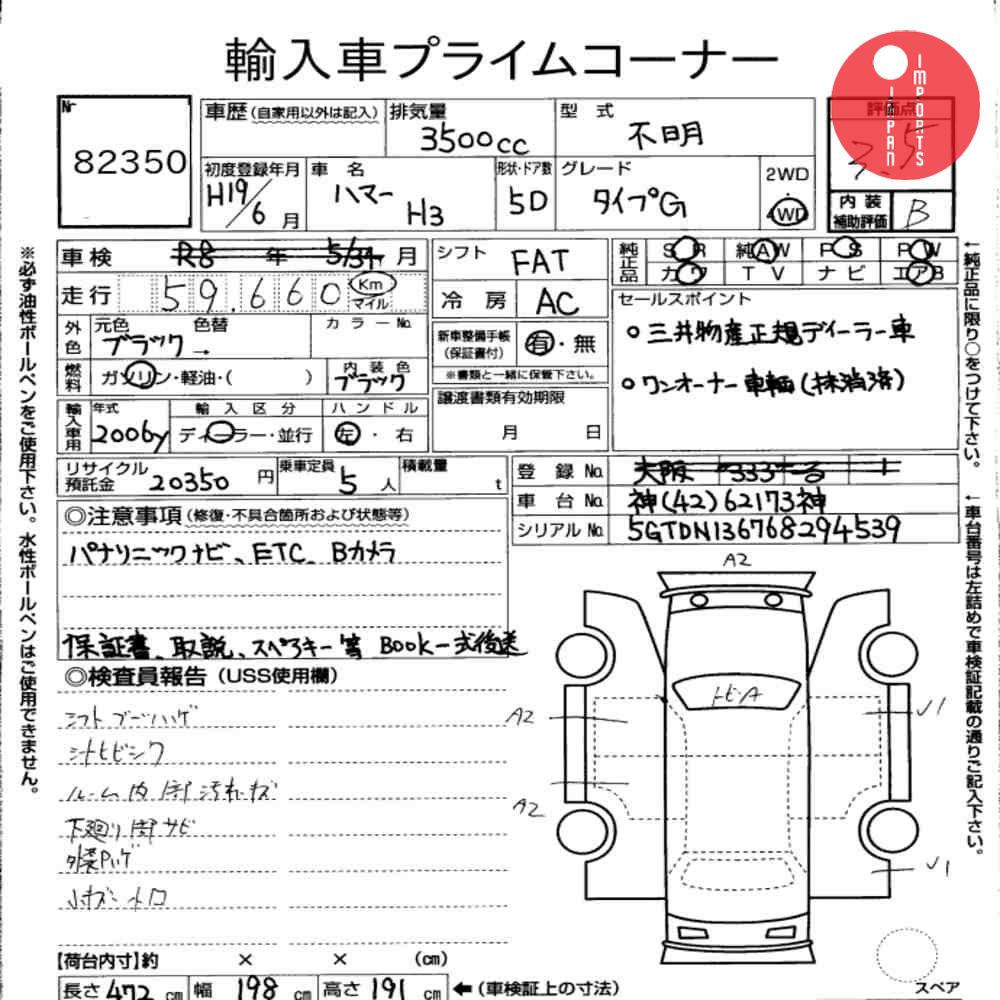 輸入車プライムコーナー
JAPAN IMPORTS
Nr 82350
車歴(自家用以外は記入) 排気量 3500cc 型式 不明 評価点 3.5
初度登録年月 H19/6月 車名 ハマー H3 形状・ドア数 5D グレード タイプG 2WD・4WD 内装補助評価 B
車検 R8年 5/31月 シフト FAT 純正品 SR 純AW PS PW
カワ TV ナビ エアB
走行 59,660 Km マイル 冷房 AC セールスポイント
外色 元色 ブラック 色替 → カラーNo. 新車整備手帳(保証書付) 有・無
○三井物産正規ディーラー車
燃料 ガソリン・軽油・( ) 内装色 ブラック ※書類と一緒に保管下さい。
○ワンオーナー車輌(抹消済)
輸入車用 年式 2006y 輸入区分 ディーラー・並行 ハンドル 左・右 譲渡書類有効期限 月 日
リサイクル預託金 20350円 乗車定員 5人 積載量 t 登録No. 大阪 333 る 1
車台No. 神(42)62173神
シリアルNo. 5GTDN136768294539
◎注意事項(修復・不具合箇所および状態等)
パナソニックナビ、ETC、Bカメラ
保証書、取説、スペアキー等 Book一式後送
◎検査員報告(USS使用欄)
シフトブーツハゲ
シートヒビシワ
ルーム内 部汚れキズ
下廻り部サビ
外装Pハゲ
小キズ 小凹
A2
トビA
A2
A2
V1
V1
スペア
【荷台内寸】約 × × (cm)
長さ 472cm 幅 198cm 高さ 191cm ←(車検証上の寸法)
※必ず油性ボールペンをご使用下さい。水性ボールペンはご使用できません。
←純正品に限り○をつけて下さい。
←車台番号は左詰めで車検証記載の通りご記入下さい。